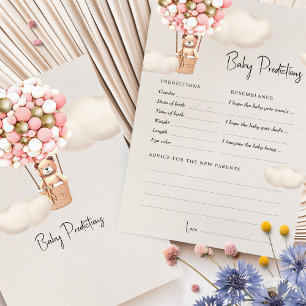 Baby Predictions
PREDICTIONS
Gender
Date of birth
Time of birth
Weight
Length
Eye color
RESEMBLANCE
I hope the baby gets mom's ...
I hope the baby gets dad's ...
I imagine the baby being ...
ADVICE FOR THE NEW PARENTS
Love
Baby Predictions